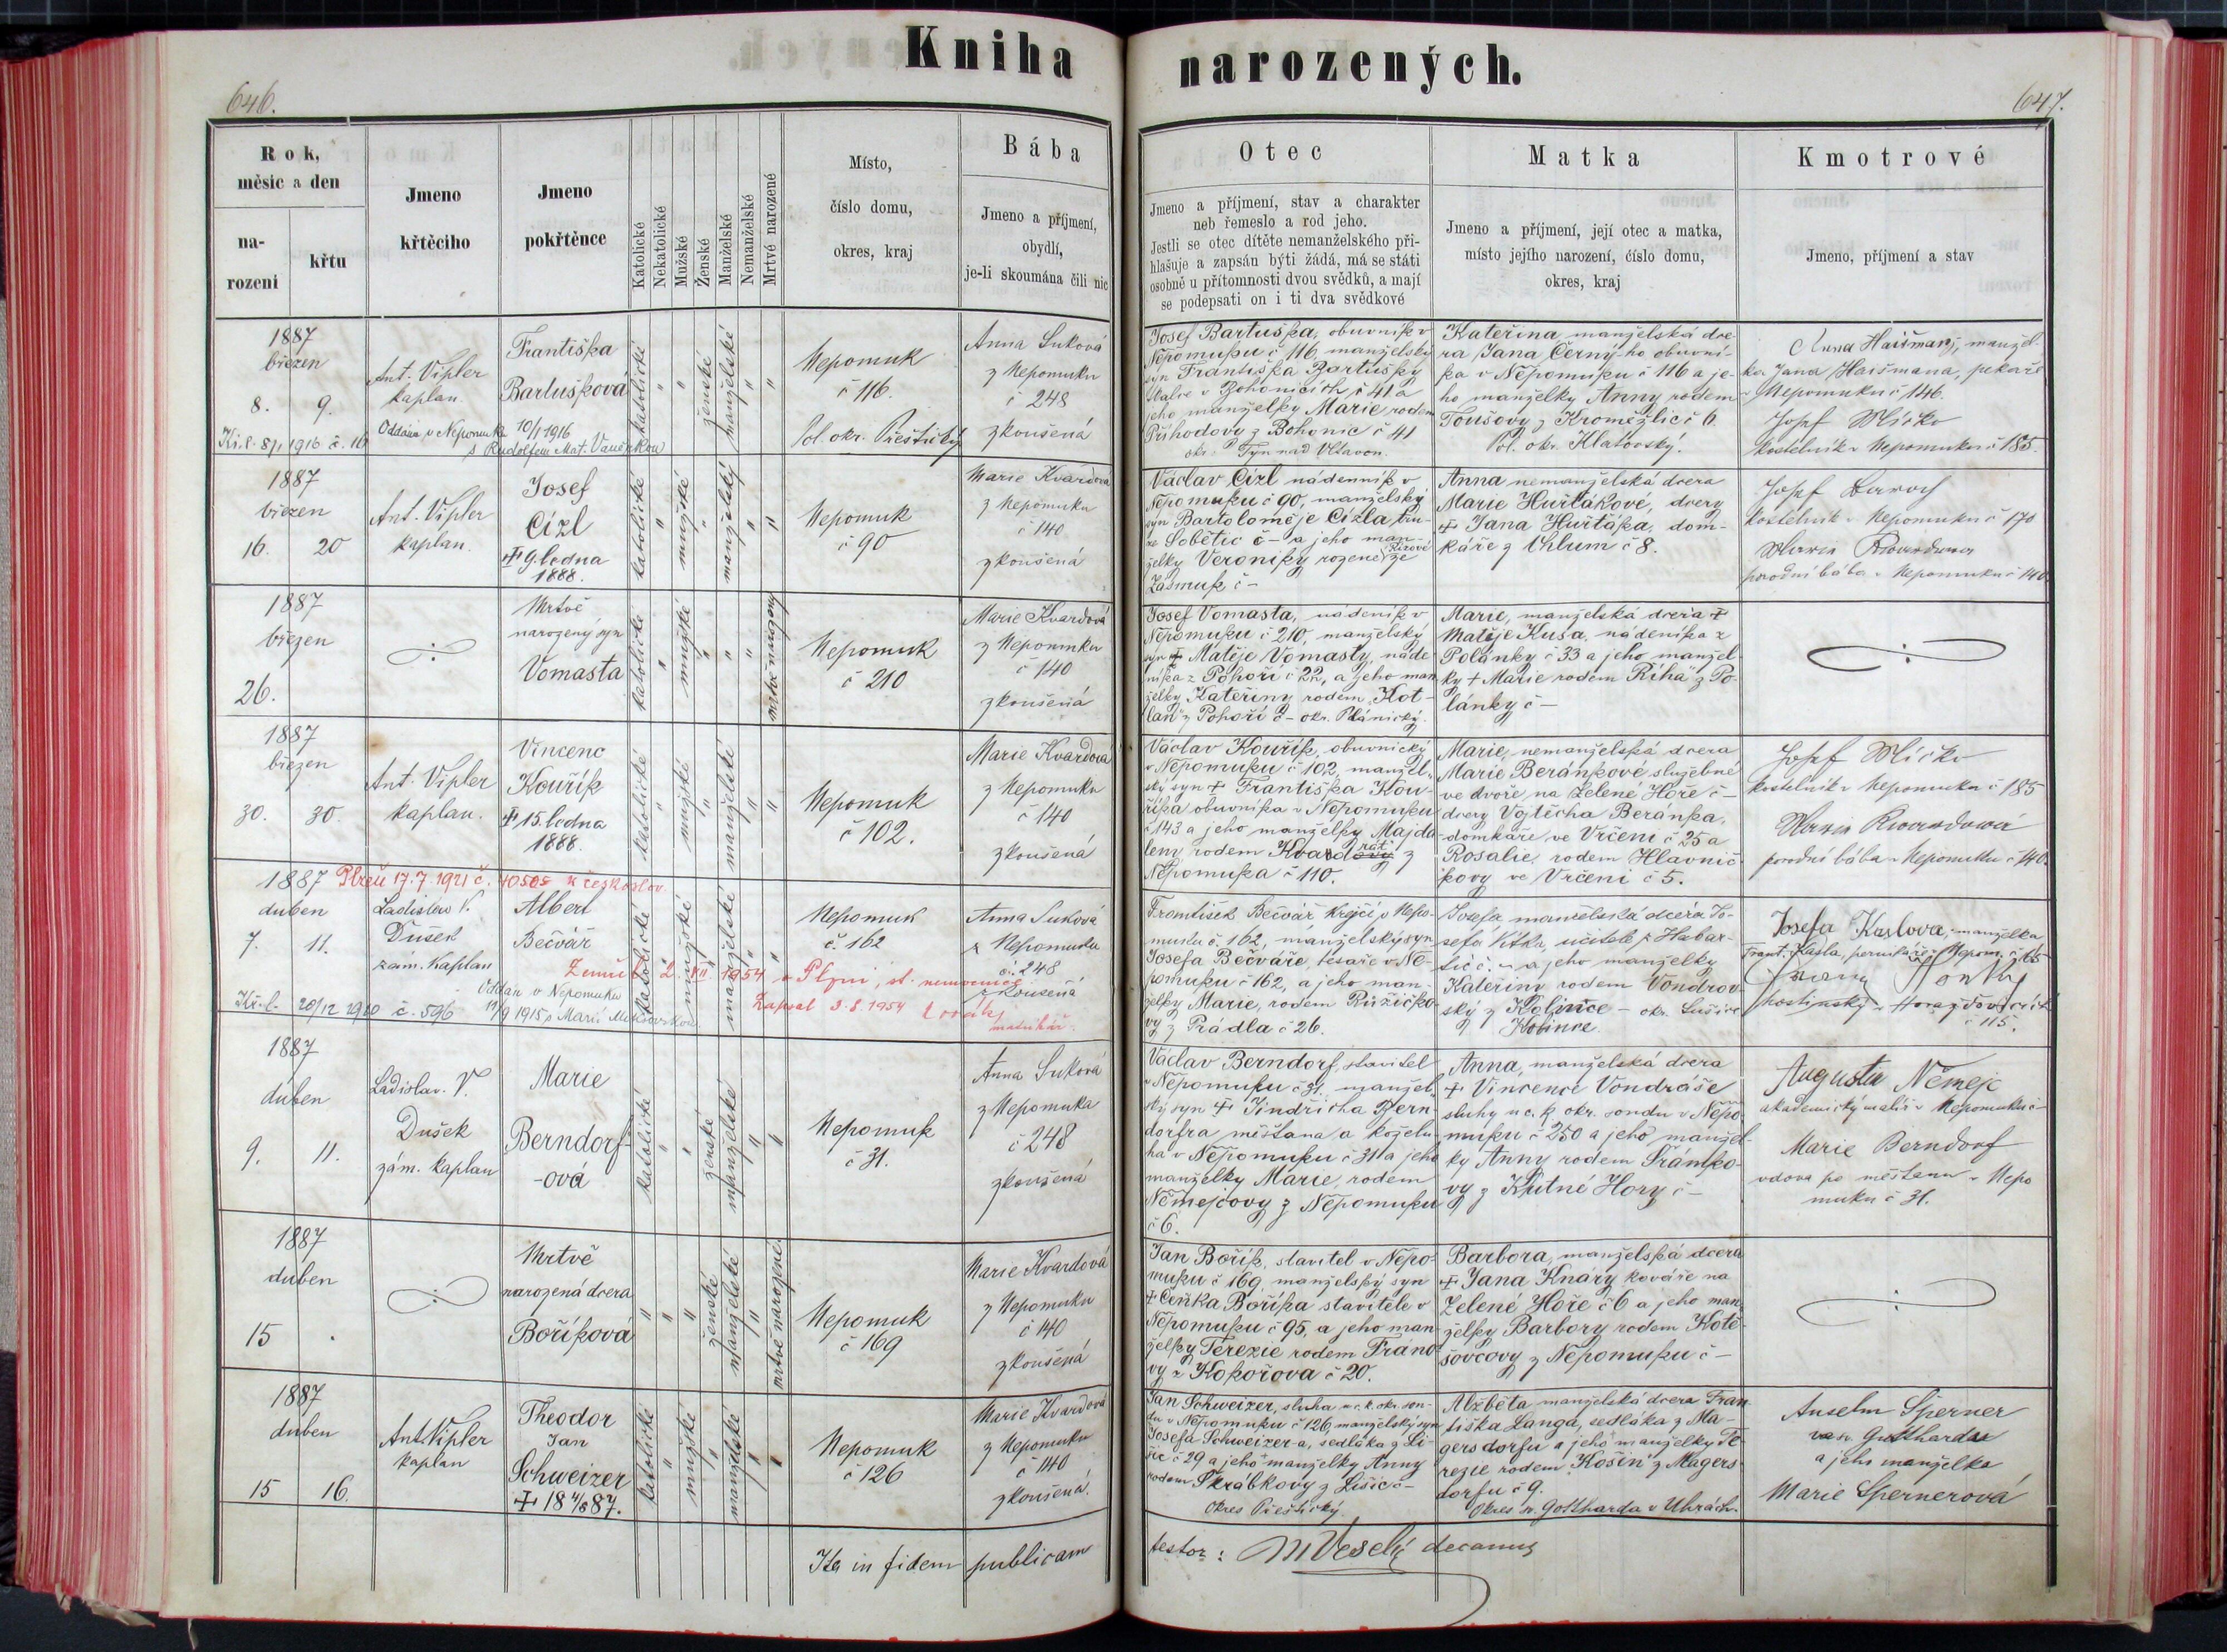 Kniha narozených.
646.
647.
Rok, měsíc a den
narození
křtu
Jmeno křtěcího
Jmeno pokřtěnce
Katolické
Nekatolické
Mužské
Ženské
Manželské
Nemanželské
Mrtvé narozené
Místo,
číslo domu,
okres, kraj
Bába
Jmeno a příjmení,
obydlí,
je-li skoumána čili nic
Otec
Jmeno a příjmení, stav a charakter
neb řemeslo a rod jeho.
Jestli se otec dítěte nemanželského při-
hlašuje a zapsán býti žádá, má se státi
osobně u přítomnosti dvou svědků, a mají
se podepsati on i ti dva svědkové
Matka
Jmeno a příjmení, její otec a matka,
místo jejího narození, číslo domu,
okres, kraj
Kmotrové
Jmeno, příjmení a stav
1887
březen
8. 9.
Ant. Vipler
kaplan
Františka
Bartušková
katolické
ženské
manželské
Nepomuk
č 116.
Pol. okr. Přeštický
Anna Suková
z Nepomuku
č 248
zkoušená
Kř. l. 8/1 1916 č. 16
Oddána v Nepomuku 10/1 1916
s Rudolfem Mat. Vaněčkou
Josef Bartuška, obuvník v
Nepomuku č 116, manželský
syn Františka Bartušky
v Bohonicích č 41 a
jeho manželky Marie rodem
Příhodovy z Bohonic č 41
okr. Týn nad Vltavou.
Kateřina manželská dce-
ra Jana Černý-ho obuvní-
ka v Nepomuku č 116 a je-
ho manželky Anny rodem
Toušovy z Kroměžlic č 6
Pol. okr. Klatovský.
Anna Haišman, manžel-
ka Jana Haišmana, pekaře
v Nepomuku č 146.
Josef Mličko
kostelník v Nepomuku č 185.
1887
březen
16. 20
Ant. Vipler
kaplan.
Josef
Cízl
+ 9. ledna
1888.
katolické
mužské
manželský
Nepomuk
č 90
Marie Kvardová
z Nepomuku
č 140
zkoušená
Václav Cízl nádenník v
Nepomuku č 90, manželský
syn Bartoloměje Cízla
ze Sobětic č – a jeho man-
želky Veroniky rozené Rízové ze
Zásmuk č –
Anna nemanželská dcera
Marie Hurtákové, dcery
+ Jana Hurtáka, dom-
káře z Chlum č 8.
Josef
kostelník v Nepomuku č 170
Marie Kvardova
porodní bába v Nepomuku č 140.
1887
březen
26.
Mrtvě
narozený syn
Vomasta
katolické
mužské
mrtvě narozený
Nepomuk
č 210
Marie Kvardová
z Nepomuku
č 140
zkoušená
Josef Vomasta, nádeník v
Nepomuku č 210, manželský
syn + Matěje Vomasty, náde-
níka z Pohoří č 22, a jeho man-
želky Kateřiny rodem Kot-
lan z Pohoří č – okr. Plánický.
Marie, manželská dcera +
Matěje Kusa, nádeníka z
Polánky č 33 a jeho manžel-
ky + Marie rodem Říha z Po-
lánky č –
1887
březen
30. 30.
Ant. Vipler
kaplan.
Vincenc
Kouřík
+ 15. ledna
1888.
katolické
mužské
manželské
Nepomuk
č 102.
Marie Kvardová
z Nepomuku
č 140
zkoušená
Václav Kouřík, obuvnický
v Nepomuku č 102, manžel-
ský syn + Františka Kou-
říka obuvníka v Nepomuku
č 143 a jeho manželky Majda-
leny rodem z
Nepomuka č 110.
Marie, nemanželská dcera
Marie Beránkové služebné
ve dvoře na Zelené Hoře č –
dcery Vojtěcha Beránka,
domkáře ve Vrčeni č 25 a
Rosalie, rodem Hlavnič-
kovy ve Vrčeni č 5.
Josef Mličko
kostelník v Nepomuku č 185
Marie Kvardová
porodní bába v Nepomuku č 140.
1887
duben
7. 11.
Plzeň 17.7.1921 č. 40505 k českoslov.
Ladislav V.
Dušek
zám. kaplan
Albert
Bečvář
katolické
mužské
manželské
Nepomuk
č. 162
Anna Suková
z Nepomuku
č. 248
zkoušená
Zemřel 2. VII. 1954 v Plzni, st. nemocnice
Zapsal 3.8.1954
matrikář.
Kř. l. 20/12 1910 č. 596
Oddán v Nepomuku
1915 s Marií
František Bečvář krejčí v Nepo-
muku č. 162, manželský syn
Josefa Bečváře, tesaře v Ne-
pomuku č 162, a jeho man-
želky Marie, rodem Růžičko-
vy z Prádla č 26.
Josefa manželská dcera Jo-
sefa Vítka, učitele z Habar-
tic č. – a jeho manželky
Kateřiny rodem Vondrov-
ský z Kolince – okr. Sušice
Kolince.
Josefa Kaslova, manželka
Frant. Kasla,
hostinský v Horažďovicích
č 115.
1887
duben
9. 11.
Ladislav. V.
Dušek
zám. kaplan
Marie
Berndorf-
-ová
katolické
ženské
manželské
Nepomuk
č 31.
Anna Suková
z Nepomuka
č 248
zkoušená
Václav Berndorf, stavitel
v Nepomuku č 31, manžel-
ský syn + Jindřicha Bern-
dorfra měšťana a koželu-
ha v Nepomuku č 31 a jeho
manželky Marie, rodem
Němejcovy z Nepomuku
č 6.
Anna, manželská dcera
+ Vincence Vondráše
sluhy u c. k. okr. soudu v Nepo-
muku č 250 a jeho manžel-
ky Anny rodem Šrámko-
vy z Kutné Hory č –
Augustin Němejc
akademický malíř v Nepomuku č –
Marie Berndorf
vdova po měšťanu v Nepo
muku č 31.
1887
duben
15
Mrtvě
narozená dcera
Boříková
ženské
manželské
mrtvě narozené
Nepomuk
č 169
Marie Kvardová
z Nepomuku
č 140
zkoušená
Jan Bořík, stavitel v Nepo-
muku č 169, manželský syn
+ Čeňka Boříka stavitele v
Nepomuku č 95, a jeho man-
želky Terezie rodem Frano-
vy z Kokořova č 20.
Barbora, manželská dcera
+ Jana Knáry kováře na
Zelené Hoře č 6 a jeho man-
želky Barbory rodem Kotě-
šovcovy z Nepomuku č –
1887
duben
15 16.
Ant. Vipler
kaplan
Theodor
Jan
Schweizer
+ 18 4/8 87.
katolické
mužské
manželské
Nepomuk
č 126
Marie Kvardová
z Nepomuku
č 140
zkoušená.
Jan Schweizer, sluha u c. k. okr. sou-
du v Nepomuku č 126, manželský syn
Josefa Schweizer-a, sedláka z Li-
šic č 29 a jeho manželky Anny
rodem Škrabkovy z Lišic č –
Okres Přeštický.
Alžběta manželská dcera Fran-
tiška Langa, sedláka z Ma-
gersdorfu a jeho manželky Te-
rezie rodem Košin z Magers-
dorfu č 9.
Okres sv. Gottharda v Uhrách.
Anselm Sperner
a jeho manželka
Marie Spernerová
Ita in fidem publicam
testor: M Veselý decanus